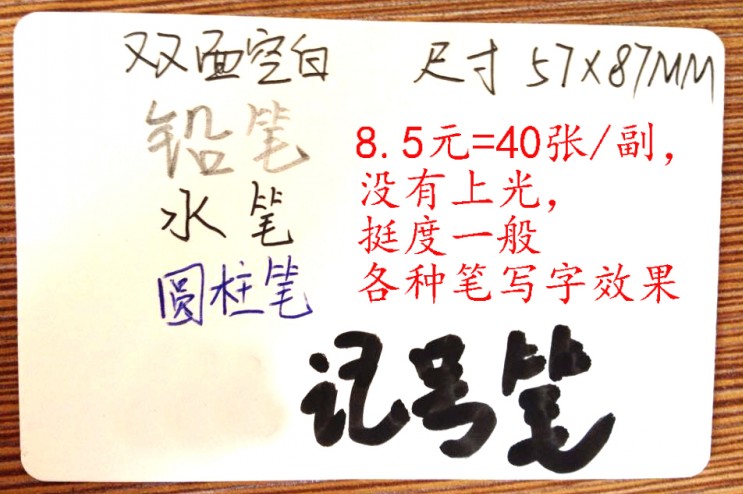 双面空白 尺寸 57×87MM
铅笔
水笔
圆柱笔
8.5元=40张/副，
没有上光，
挺度一般
各种笔写字效果
记号笔